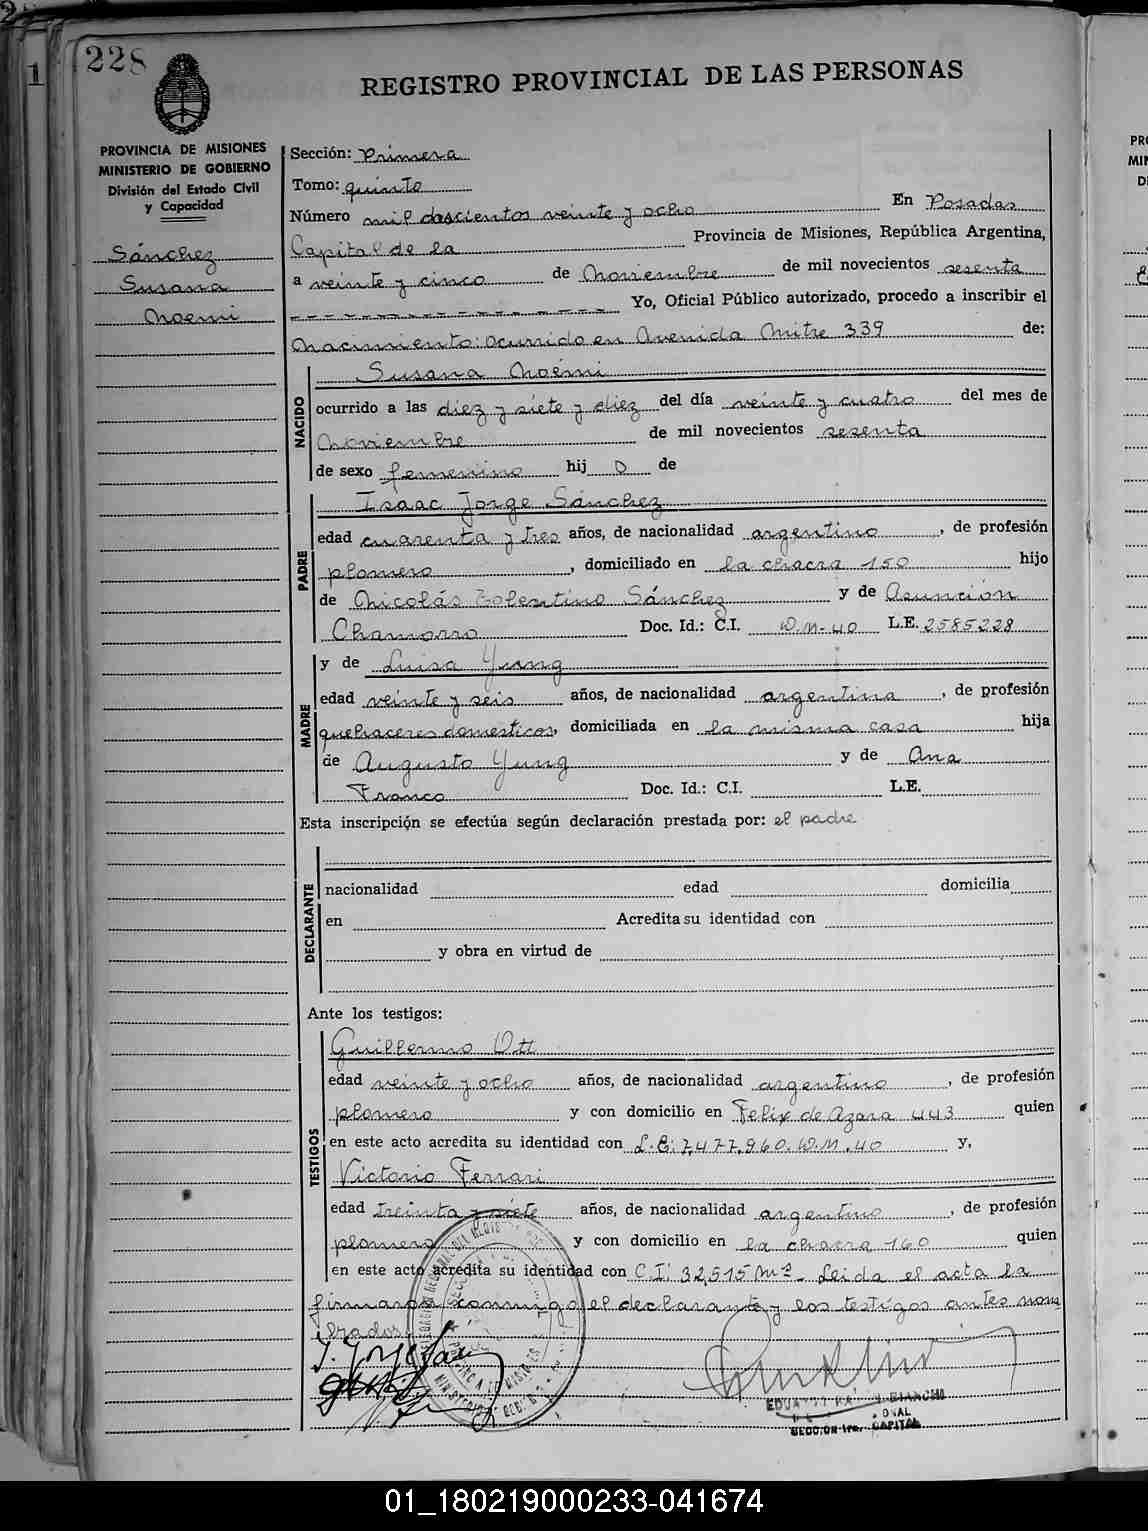 228
REGISTRO PROVINCIAL DE LAS PERSONAS
PROVINCIA DE MISIONES
MINISTERIO DE GOBIERNO
División del Estado Civil
y Capacidad
Sánchez
Susana
Noemi
Sección: Primera
Tomo: quinto
Número mil doscientos veinte y ocho En Posadas
Capital de la Provincia de Misiones, República Argentina,
a veinte y cinco de Noviembre de mil novecientos sesenta
Yo, Oficial Público autorizado, procedo a inscribir el
Nacimiento: ocurrido en Avenida Mitre 339 de:
NACIDO
Susana Noémi
ocurrido a las diez y siete y diez del día veinte y cuatro del mes de
Noviembre de mil novecientos sesenta
de sexo femenino hij a de
PADRE
Isaac Jorge Sánchez
edad cuarenta y tres años, de nacionalidad argentino, de profesión
plomero, domiciliado en la chacra 150 hijo
de Nicolás Tolentino Sánchez y de Asunción
Chamorro Doc. Id.: C.I. D.M-40 L.E. 2585228
MADRE
y de Luisa Yung
edad veinte y seis años, de nacionalidad argentina, de profesión
quehaceres domésticos, domiciliada en la misma casa hija
de Augusto Yung y de Ana
Franco Doc. Id.: C.I. L.E.
Esta inscripción se efectúa según declaración prestada por: el padre
DECLARANTE
nacionalidad edad domicilia
en Acredita su identidad con
y obra en virtud de
Ante los testigos:
TESTIGOS
Guillermo Ott
edad veinte y ocho años, de nacionalidad argentino, de profesión
plomero y con domicilio en Felix de Azara 443 quien
en este acto acredita su identidad con L.E: 7.477.960. D.M. 40 y,
Victorio Ferrari
edad treinta y siete años, de nacionalidad argentino, de profesión
plomero y con domicilio en la chacra 160 quien
en este acto acredita su identidad con C.I: 32,515 Mns. Leida el acta la
firmaron conmigo el declarante y los testigos antes nom
brados.
SECCION 1ra. CAPITAL
01_180219000233-041674